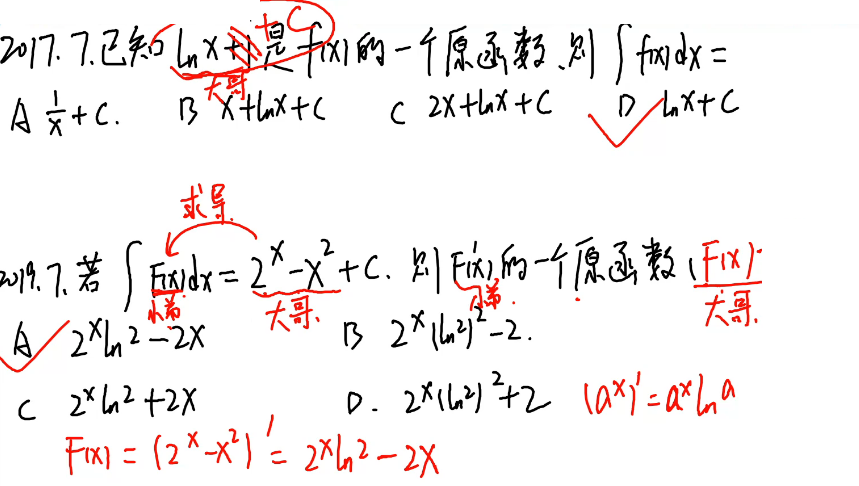 +C
2017.7.已知 ln x+1 是 f(x) 的一个原函数、则 ∫f(x)dx=
大哥
A 1/x+C. B x+lnx+C C 2x+lnx+C D lnx+C
求导.
2019.7.若 ∫F(x)dx=2^x-x^2+C. 则 F'(x)的一个原函数(F(x).
小弟 大哥. 小弟. 大哥.
A 2^x ln2-2x B 2^x(ln2)^2-2.
C 2^x ln2+2x D. 2^x(ln2)^2+2 (a^x)'=a^x ln a
F(x)=(2^x-x^2)'=2^x ln2-2x